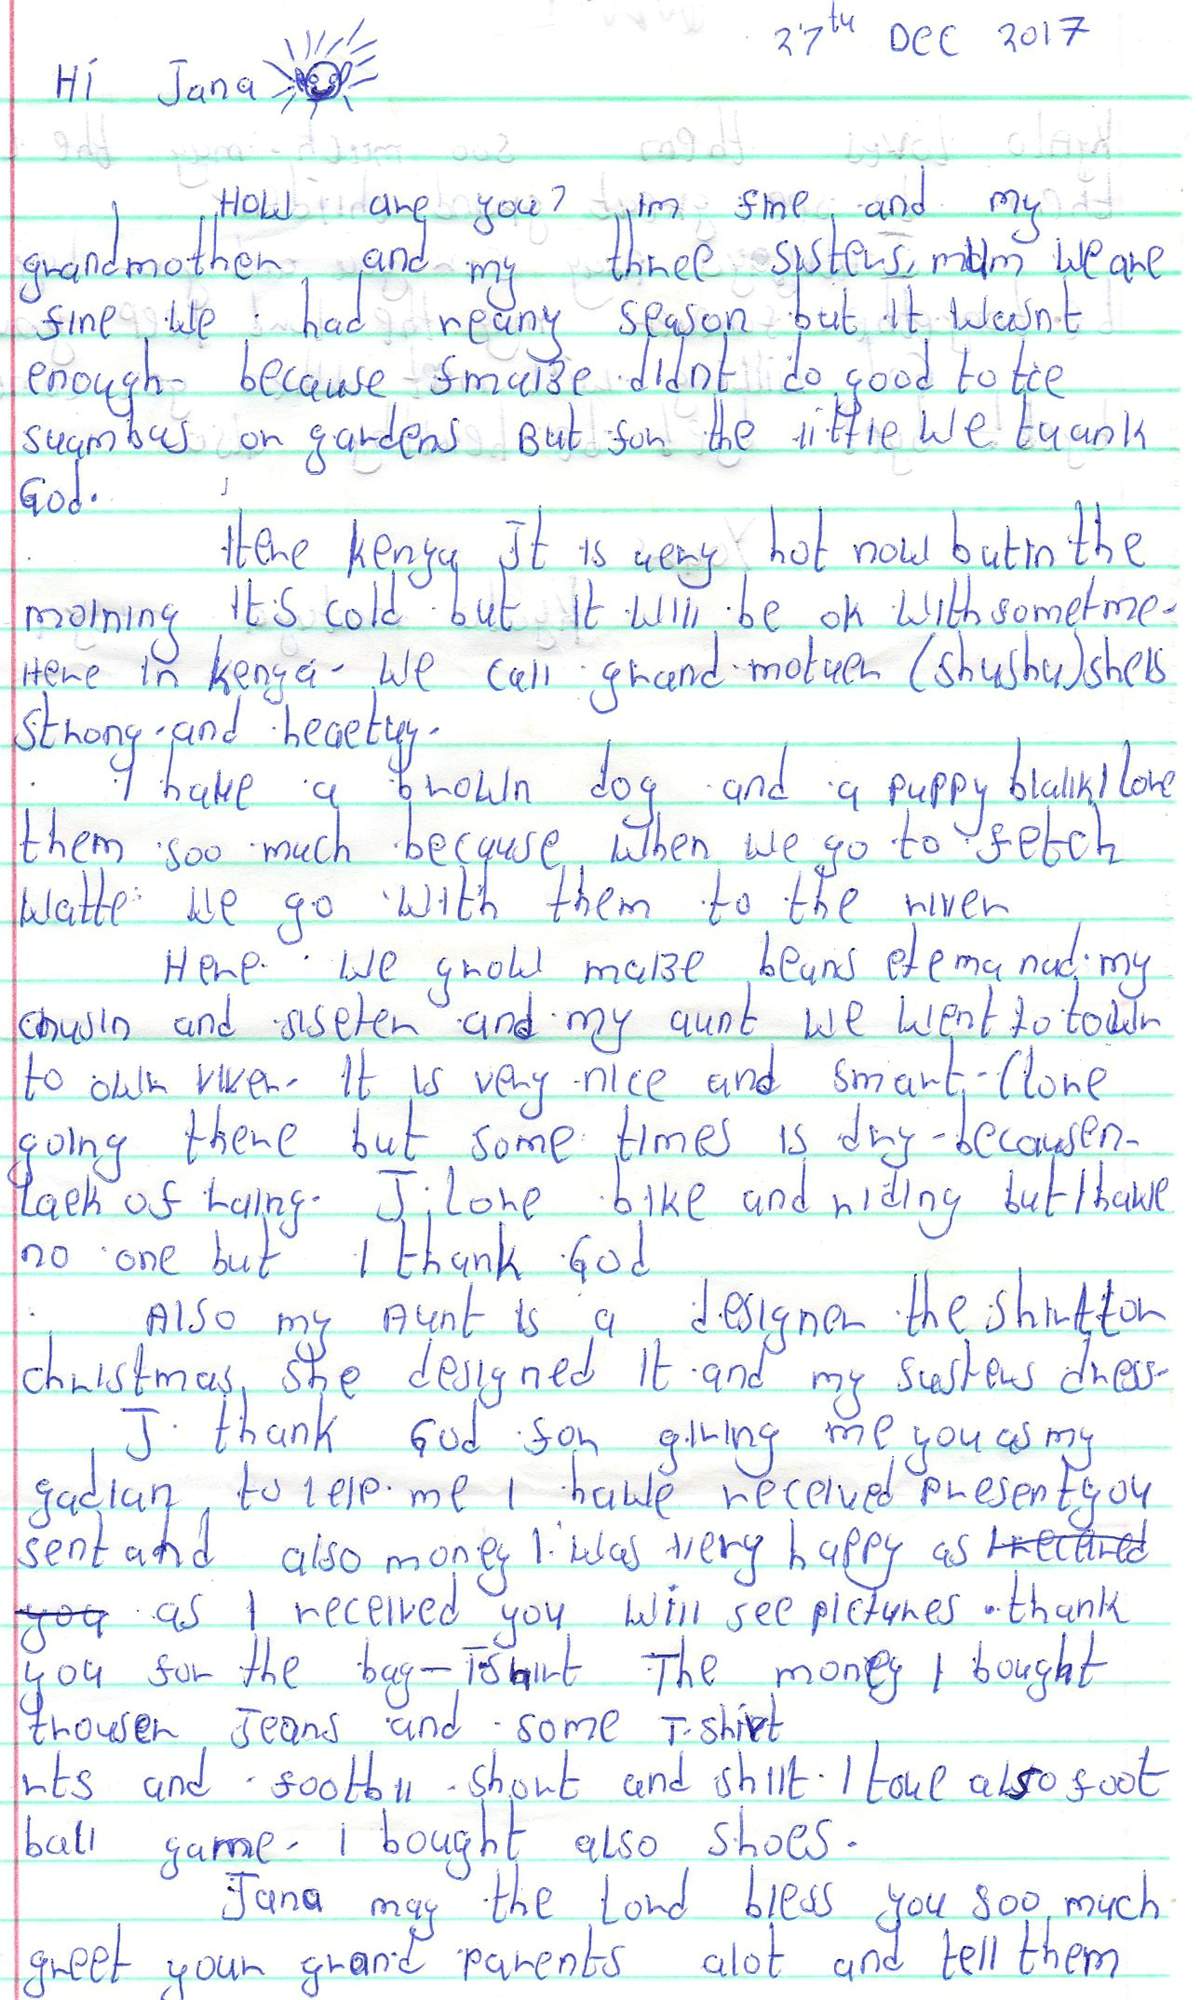 27th Dec 2017
Hi Jana
How are you? im fine and my
grandmother and my three sisters, mum we are
fine we had reany season but it wasnt
enough because maize didnt do good to
or gardens But for the little we thank
God.
Here Kenya It is very hot now but in the
morning it's cold but it will be ok with sometme.
Here in Kenya - we call grand mother (shushu) sheis
strong and
I have a brown dog and a puppy blalk I love
them soo much because when we go to fetch
Watte we go with them to the river
Here we grow maize beans my
and siseter and my aunt we went to town
to own river. It is very nice and smart - I love
going there but some times is dry - because
lack of raing. I love bike and riding but I have
no one but I thank God
Also my Aunt is a designer the shirt for
christmas she designed it and my susters dress-
I thank God for giving me you as my
gadian to help me I have received present you
sent and also money I was very happy as I received
you as I received you will see pictures. thank
you for the bag - Tshirt The money I bought
trouser Jeans and some T-shirt
rts and footbll short and shilt. I also foot
ball game - I bought also shoes.
Jana may the Lord bless you soo much
greet your grand parents alot and tell them